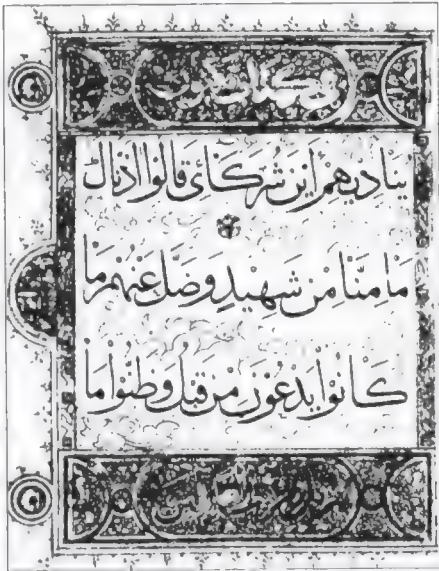 في كتاب مكنون
يُنَادِيهِمْ اَيْنَ شُرَكَائِي قَالُوا اذَنَّاكَ
مَا مِنَّا مِنْ شَهِيدٍ وَضَلَّ عَنْهُمْ مَا
كَانُوا يَدْعُونَ مِنْ قَبْلُ وَظَنُّوا مَا